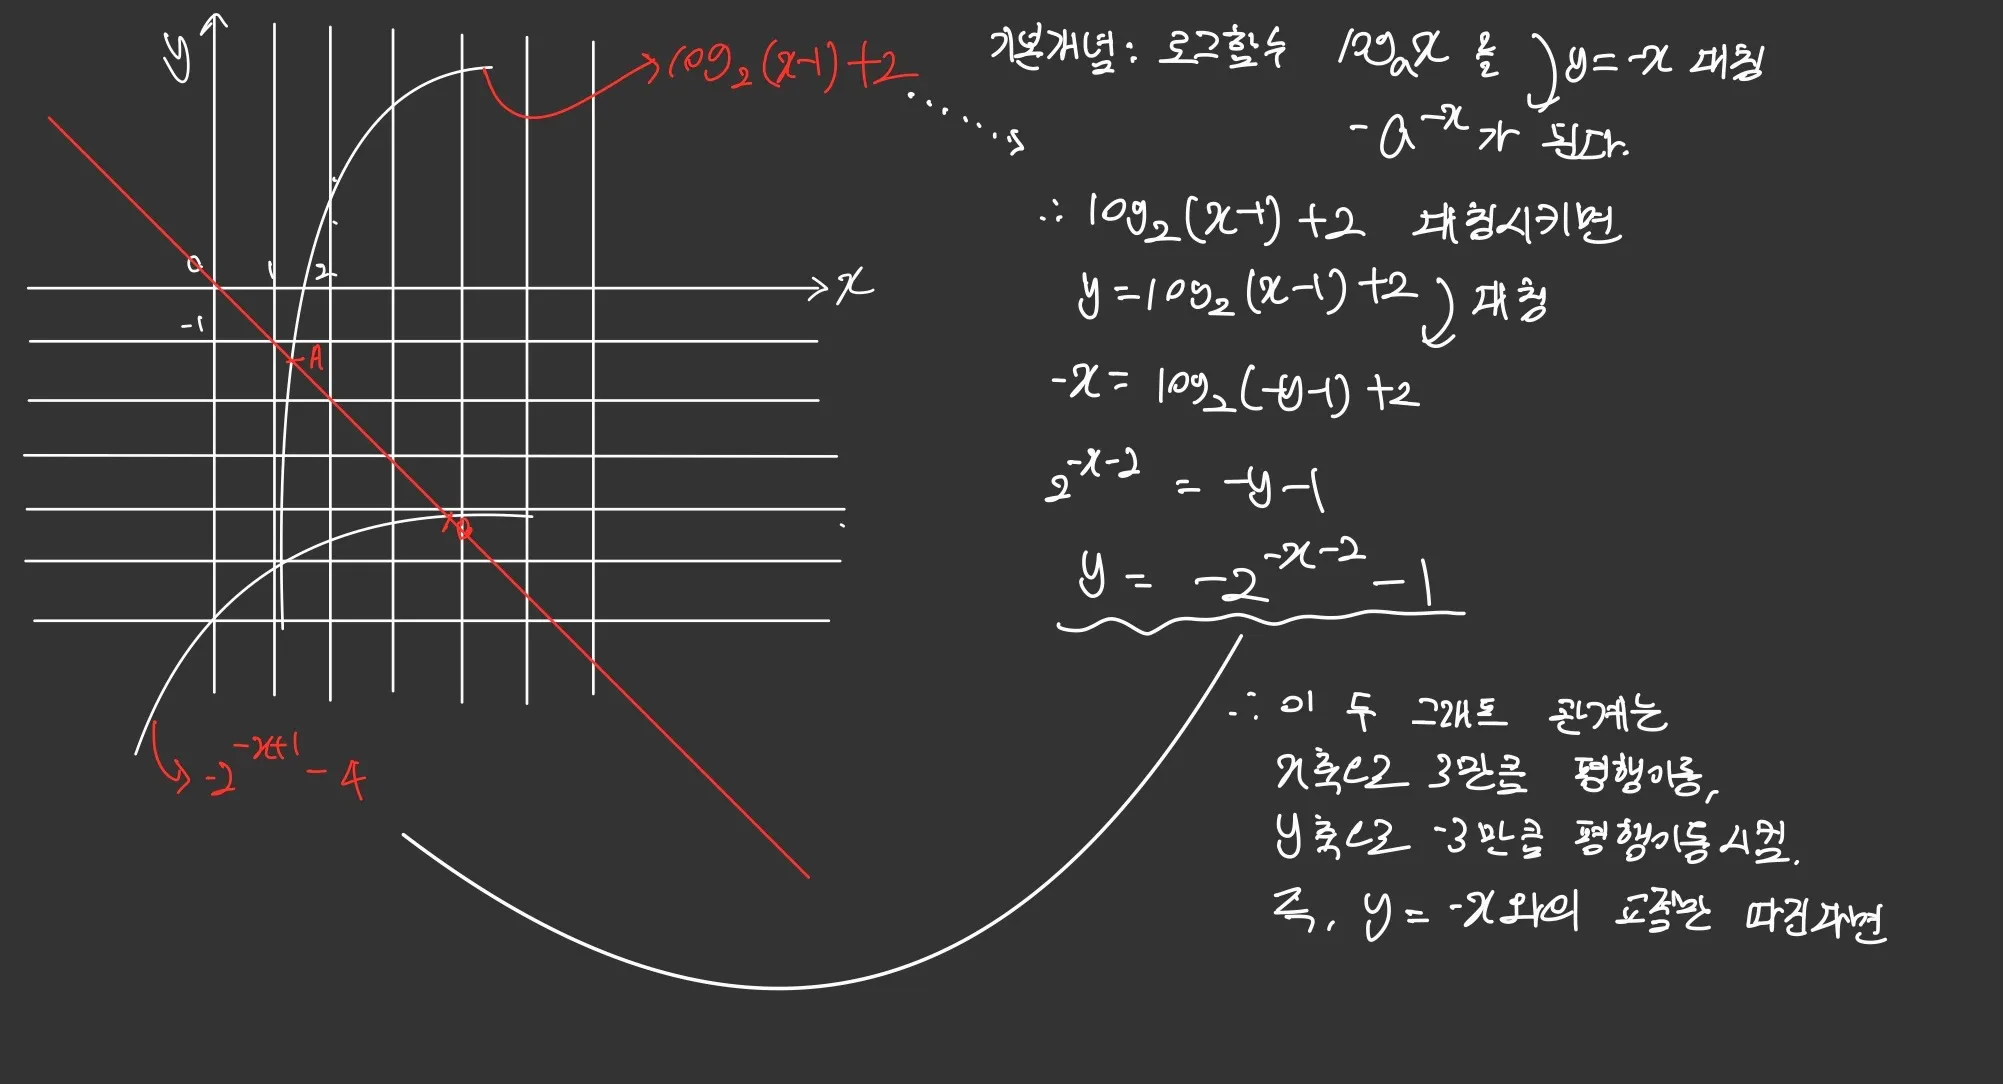 y
log₂(x-1)+2
0
1
2
x
-1
A
B
-2^{-x+1} - 4
기본개념: 로그함수 logₐx 을 y=-x 대칭
-a^{-x}가 된다.
∴ log₂(x-1)+2 대칭시키면
y=log₂(x-1)+2 대칭
-x= log₂(-y-1)+2
2^{-x-2} = -y-1
y = -2^{-x-2} - 1
∴ 이 두 그래프 관계는
x축으로 3만큼 평행이동,
y축으로 -3만큼 평행이동시킴.
즉, y=-x와의 교점만 따진다면